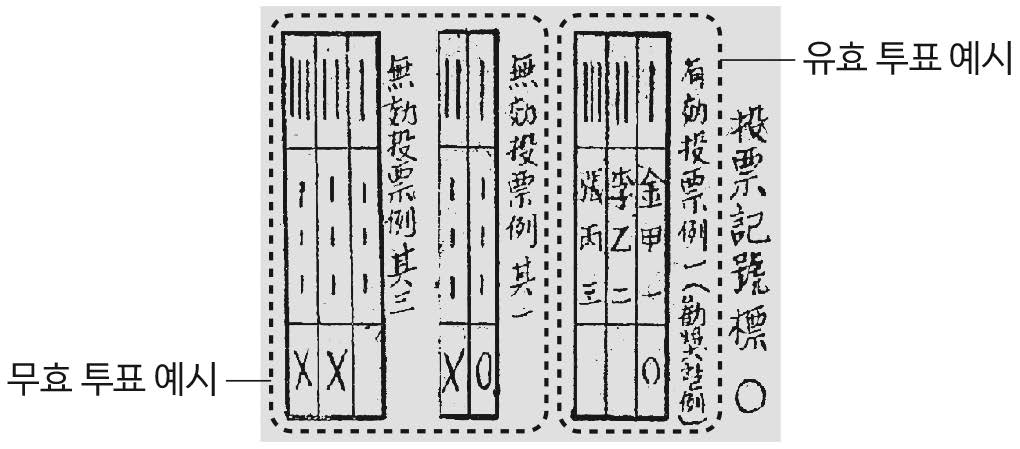 유효 투표 예시
投票記號標 ○
有効投票例一(勸奬型例)
金甲一
李乙二
張丙三
○
無効投票例 其一
○
X
無効投票例其三
X
X
무효 투표 예시